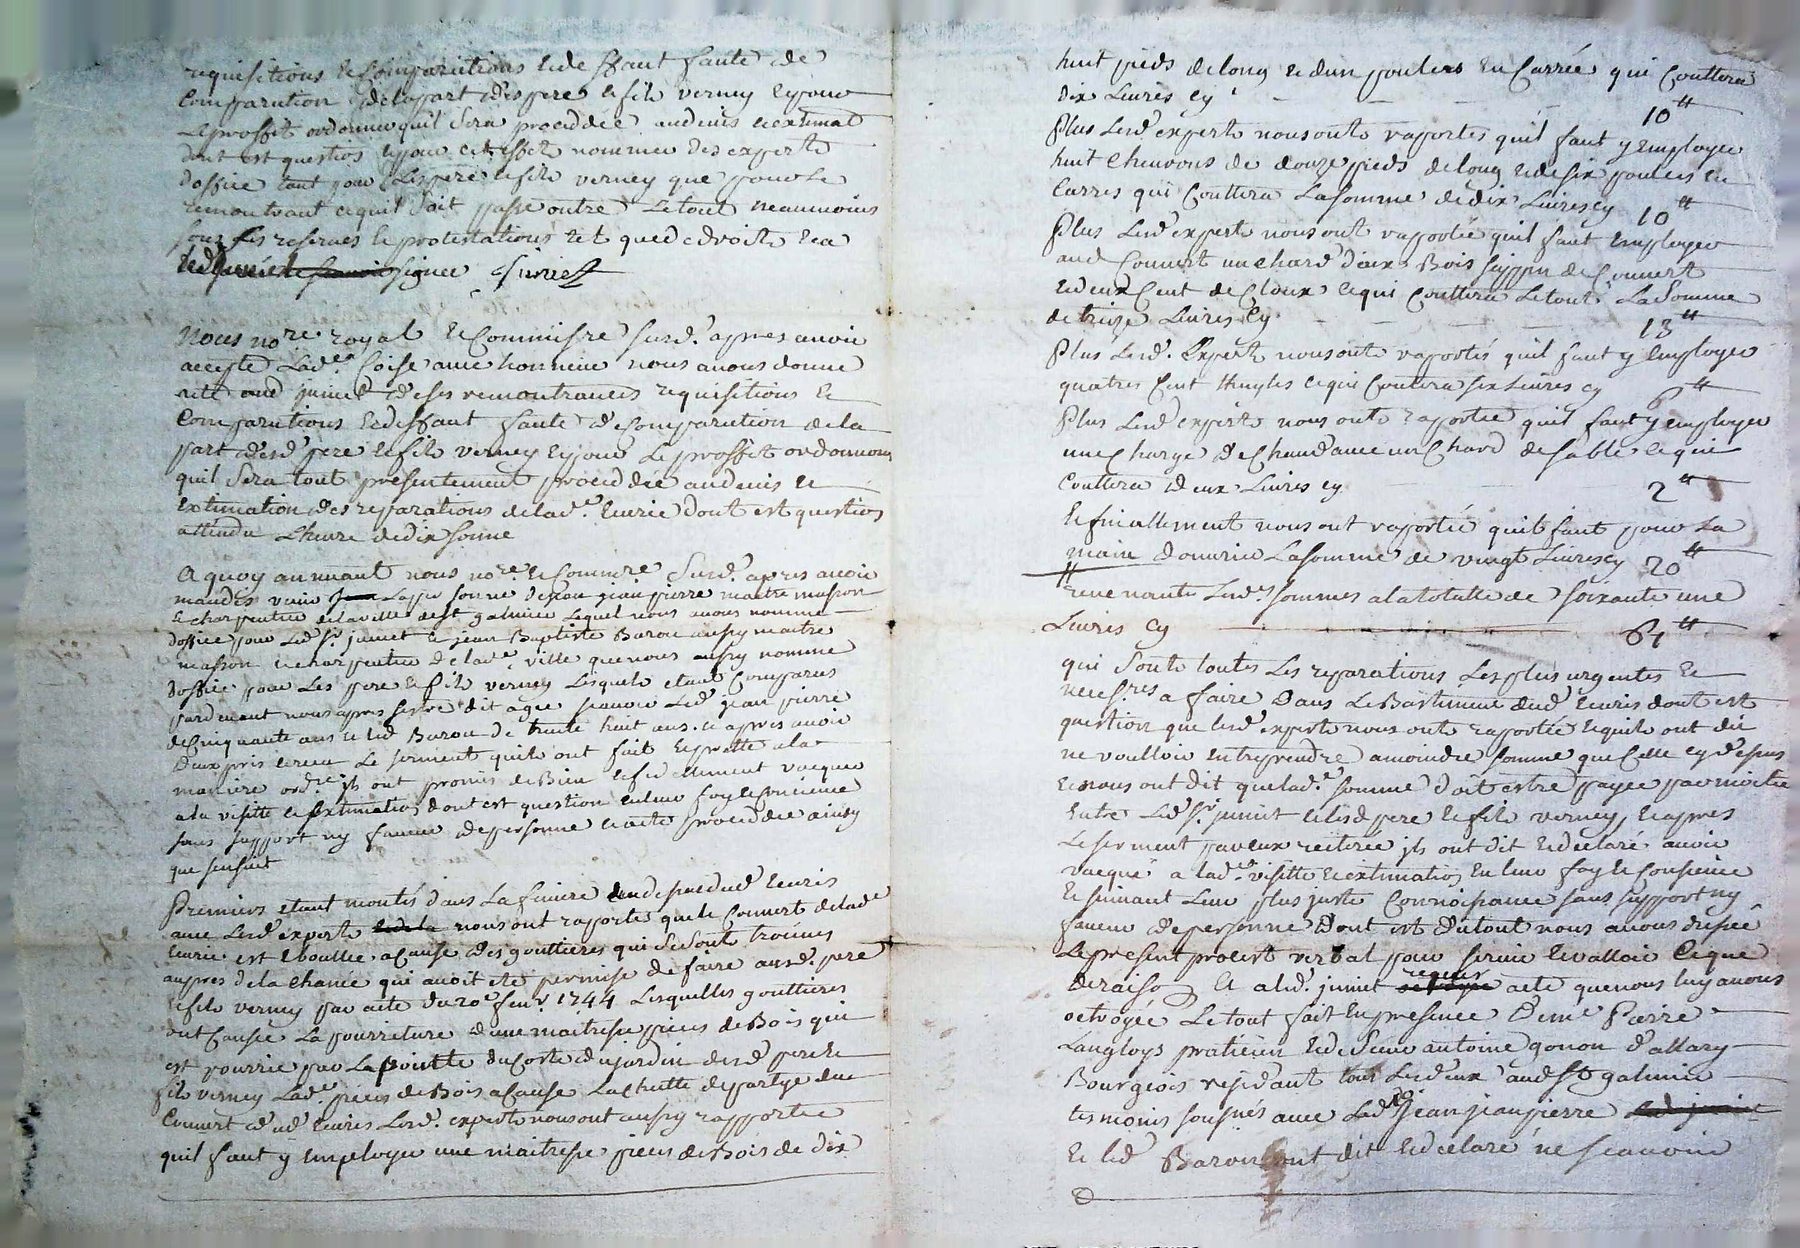 requisitions & comparutions & deffaut faute de
comparution de la part desd pere & fils verney & pour
Le proffit ordonner quil sera proceddée aud avis & extimaõn
dont est question & pour cet effet nommer des experts
doffice tant pour Lesd pere & fils verney que pour Le
remontrant & quil soit passé outre Le tout neanmoins
sous ses reserves & protestations tel que de droit & a
signée Juniet
Nous nore. royal & Commissre susd. apres avoir
accepté Lade. Coise avec honneur nous avons donné
acte aud juniet de ses remontrances requisitions &
Comparutions & deffaut faute de Comparution de la
part desd pere & fils verney & pour Le proffit ordonnons
quil sera tout presentement proceddée aud avis &
Extimation des reparations de lade. Ecurie dont est question
attendu Lheure de dix sonné
A quoy annuant nous nore. & Commre susd. apres avoir
mandés venir La personne de jean pierre maitre masson
& charpentier de la ville de st galmier Lequel nous avons nommé
doffice pour Led sr. juniet & jean Baptiste Barou aussy maitre
masson & charpentier de lade. ville que nous aussy nommé
doffice pour Les pere & fils verney Lesquels etant Comparus
pardevant nous apres sestre dit agée scavoir Led jean pierre
de Cinquante ans & led Barou de trente huit ans & apres avoir
deux pris & receu Le serment quils ont fait & presté a la
maniere ordre. jls ont promis de Bien & fidellement vacquer
a la visitte & extimation dont est question en leur foy & Conscience
sans support ny faveur de personne & a été proceddée ainsy
que sensuit
Premiers etant montés dans La feniere au dessus dud Ecurie
avec Lesd experts nous ont raportés que le Couvert de lade
Ecurie est Eboullée a Cause des gouttieres qui se sont trouvées
aupres de la Chanée qui avoit eté permise de faire ausd. pere
& fils verney par acte du 20e fevr. 1744 Lesquelles gouttieres
ont Causée La pourriture dune maitresse piece de Bois qui
est pourrie par La pointte du Costé du jardin desd pere &
fils verney Lade. piece de Bois a Cause La chutte de partye du
Couvert dud Ecurie Lesd. experts nous ont aussy rapportée
quil faut y Employer une maitresse piece de Bois de dix
huit pieds de long & dun pouliers En Carrée qui Couttera
dix Livres Cy 10 ₶
Plus Lesd experts nous onts raportés quil faut y Employer
huit Chevrons de douze pieds de long & de six pouces En
Carres qui Couttera La somme de dix Livres Cy 10 ₶
Plus Lesd experts nous ont raportée quil faut Employer
aud Couvert un chard deux Bois sappin de Couvert
& deux Cent de Cloux & qui Couttera Le tout La Somme
de treize Livres Cy 13 ₶
Plus Lesd. Experts nous onts raportés quil faut y Employer
quatres Cent thuyles & qui Coutera six Livres Cy 6 ₶
Plus Lesd experts nous onts raportée quil faut y employer
une Charge de Chaud avec un Chard de sable & qui
Couttera deux Livres Cy 2 ₶
& finallement nous ont raportée quil faut pour La
main douvrier La somme de vingt Livres Cy 20 ₶
revenants Lesdes. sommes a la totalle de soixante une
Livres Cy 61 ₶
qui sonts toutes Les reparations Les plus urgentes &
necesres a faire dans Le Battiment dud Ecurie dont est
question que lesd experts nous onts raportée & quils ont dit
ne voulloir Entreprendre a moindre somme que Celle cy dessus
& nous ont dit que lade. somme doit estre payée par moitié
Entre Led sr. juniet & lesd pere & fils verney, & apres
Le serment par eux reiterée jls ont dit & declaré avoir
vacqué a lade. visitte & extimation En leur foy & Conscience
& suivant Leur plus juste Connoissance sans support ny
faveur de personne dont et du tout nous avons dressée
Le present procest verbal pour servir & valloir Ce que
de raison & a led. juniet requis acte que nous luy avons
octroyée Le tout fait En presence de me Pierre
Langloys praticien & de sieur antoine gonon d'allary
Bourgeois residant tous Lesd eux aud St galmier
tesmoins sousnés avec Led jean pierre
& led Barou ont dit & declaré ne scavoir